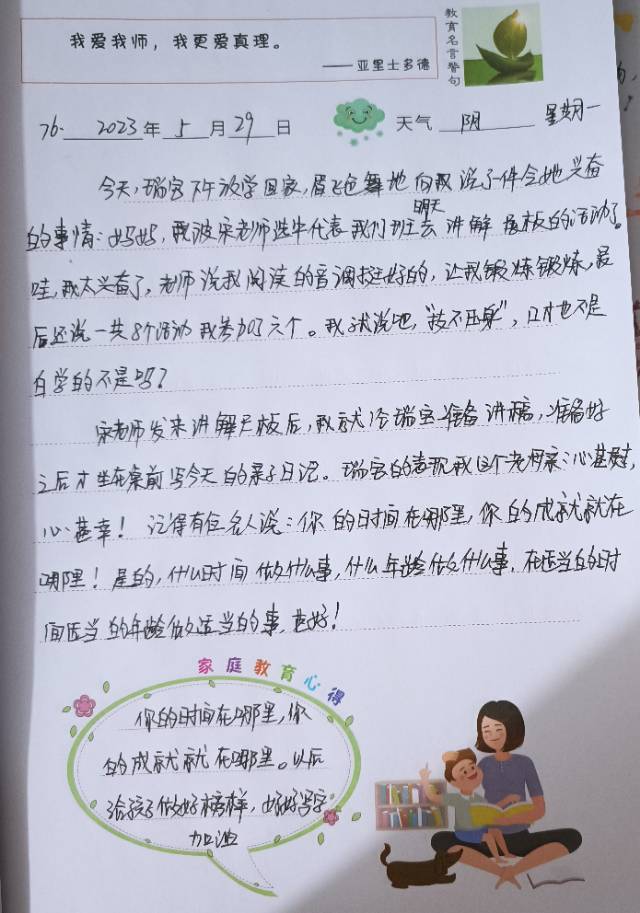 我爱我师，我更爱真理。
——亚里士多德
教育名言警句
76. 2023年5月29日 天气 阴 星期一
今天，瑞宝下午放学回家，眉飞色舞地向我说了件令她兴奋
的事情：妈妈，我被宋老师选中代表我们班明天去讲解展板的活动了。
哇，我太兴奋了，老师说我阅读的音调挺好的，让我锻炼锻炼，最
后还说一共8个活动我参加了六个。我就说吧，“技不压身”，口才也不是
白学的不是吗？
宋老师发来讲解展板后，我就给瑞宝准备讲稿，准备好
之后才坐在桌前写今天的亲子日记。瑞宝的表现我这个老母亲：心甚慰，
心甚幸！记得有位名人说：你的时间在哪里，你的成就就在
哪里！是的，什么时间做什么事，什么年龄做什么事，在适当的时
间适当的年龄做适当的事，甚好！
家庭教育心得
你的时间在哪里，你
的成就就在哪里。以后
给孩子做好榜样，好好写字
加油